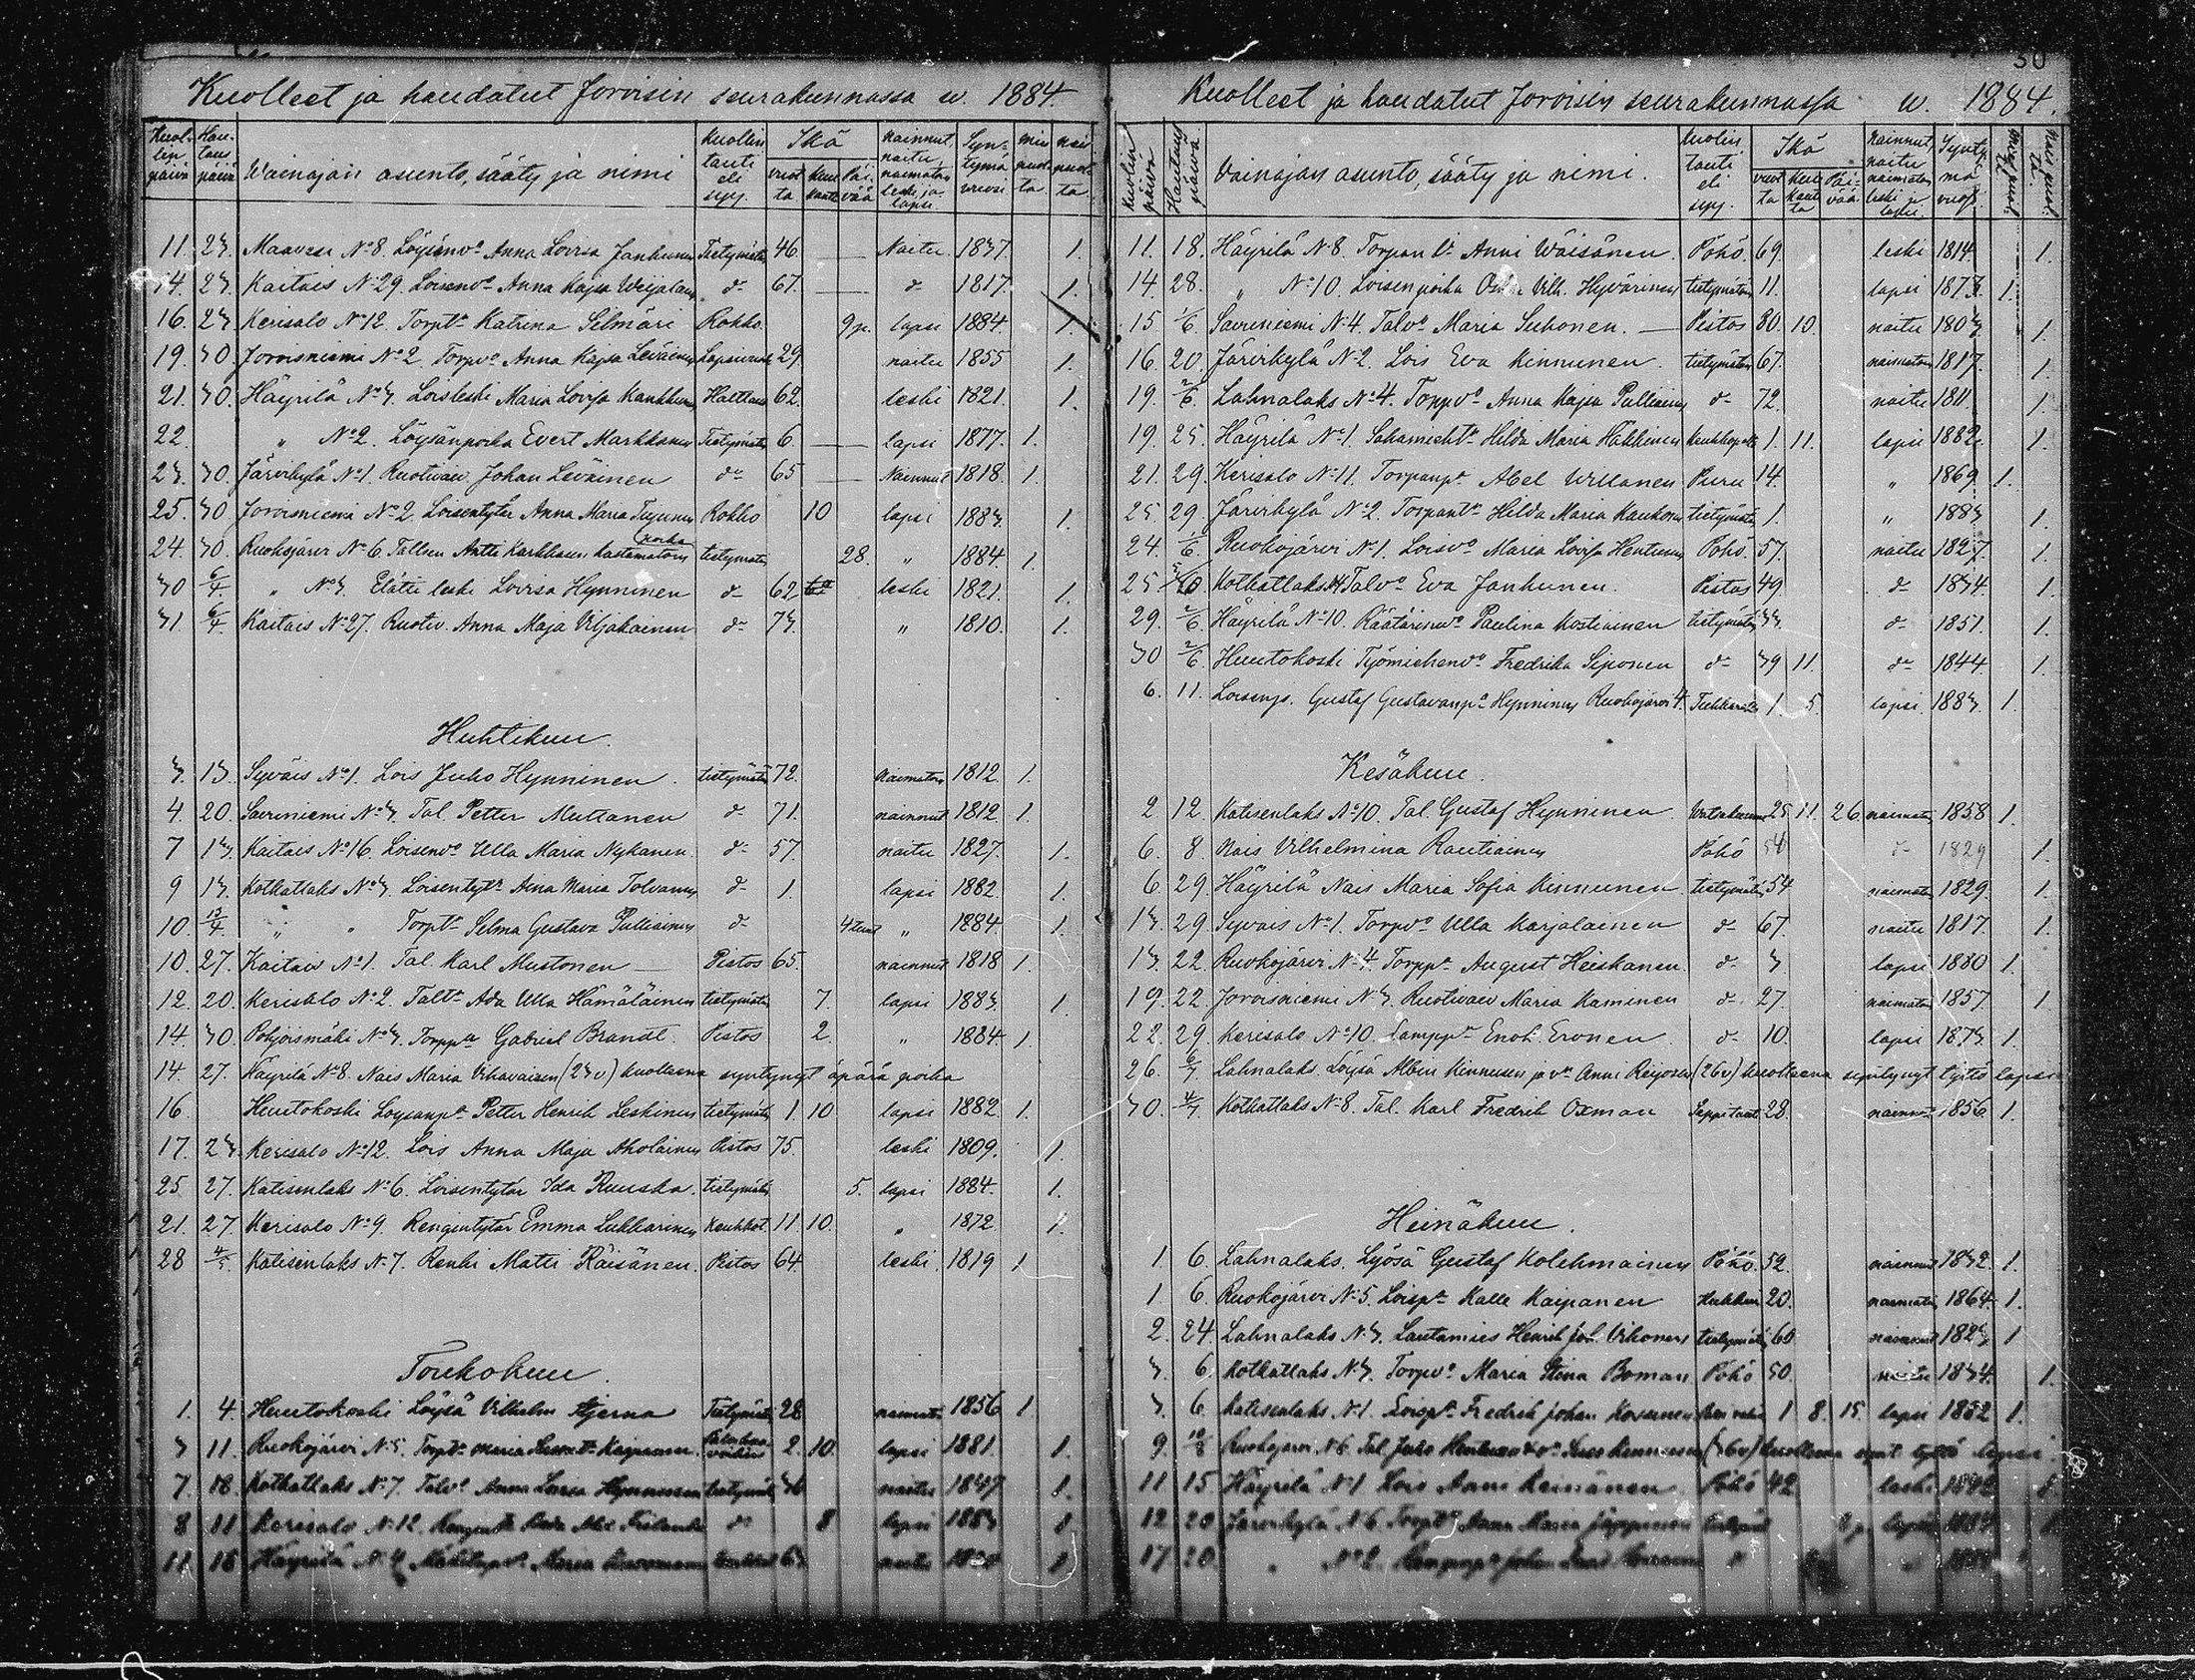 Kuolleet ja haudatut Joroisin seurakunnassa w. 1884.
Kuolin päivä Hautaus päivä Wainajan asunto, sääty ja nimi Kuolin tauti eli syy. Ikä vuot ta kuu kautta Päi vää nainnut, naitu, naimaton leski ja lapsi. Syn- tymä vuosi mies puol ta. nais puol ta.
11. 23. Maavesi No 8. Löysänvo Anna Lovisa Janhunen Tietymätön 46. Naitu. 1837. 1.
14. 23. Kaitais No 29. Loisenvo Anna Kajsa do 67. do 1817. 1.
16. 23. Kerisalo No 12. Torptr Katrina Selmäri Rokko. 9 p. lapsi 1884. 1.
19. 30. Joroisniemi No 2. Torpvo Anna Kajsa Leväinen 29. naitu 1855 1.
21. 30. Häyrilä No 3. Loisleski Maria Lovisa 62. leski 1821. 1.
22. " No 2. Löysänpoika Evert Markkanen Tietymätön 6. lapsi 1877. 1.
23. 30. Järvikylä No 1. Ruotivaiv. Johan Leväinen do 65 Nainnut 1818. 1.
25. 30 Joroisniemi No 2. Loisentytär Anna Maria Rokko 10 lapsi 1883. 1.
24. 30. Ruokojärvi No 6. Tallsen Antti Karhhasen kastamatoin poika tietymätön 28. " 1884. 1.
30 6/4 " No 3. Elätti leski Lovisa Hynninen do 62 leski 1821. 1.
31. 6/4. Kaitais No 27. Ruotiv. Anna Maja Viljakainen do 73. " 1810. 1.
Huhtikuu.
3. 13. Syväis No 1. Lois Juho Hynninen. tietymätön 72. naimaton 1812. 1.
4. 20. Savuniemi No 3. Tal. Petter Muttanen do 71. nainnut 1812. 1.
7 13. Kaitais No 16. Loisenvo Ulla Maria Nykänen. do 57. naitu 1827. 1.
9 13. Kotkatlaks No 3. Loisentytr Aina Maria Tolvanen do 1. lapsi 1882. 1.
10. 13/4 " " Torptr Selma Gustava Pulliainen do 4 tunt " 1884. 1.
10. 27. Kaitais No 1. Tal. Karl Mustonen Pistos 65. nainnut 1818 1.
12. 20. Kerisalo No 2. Taltr Ada Ulla Hämäläinen tietymätön 7. lapsi 1883. 1.
14. 30. Pohjoismäki No 3. Torppa Gabriel Brandt. Pistos 2. " 1884. 1.
14. 27. Häyrilä No 8. Nais Maria Vihavaisen (23 v) kuolleena syntynyt äpärä poika
16. Huutokoski Löysänpa Petter Henrik Leskinen tietymätön 1. 10 lapsi 1882. 1.
17. 23. Kerisalo No 12. Lois Anna Maja Aholainen Pistos 75. leski 1809. 1.
25. 27. Katisenlaks No 6. Loisentytär Ida Ruuska. tietymätön 5. lapsi 1884. 1.
21. 27. Kerisalo No 9. Rengintytär Emma Lukkarinen Keuhkot. 11 10. " 1872. 1.
28 4/5. Katisenlaks No 7. Renki Matti Räisänen. Pistos 64. leski. 1819 1
Toukokuu.
1. 4. Huutokoski Löysä Vilhelm Stjerna Tietymätön 28 naimaton 1856 1.
3 11. Ruokojärvi No 5. Torptr Maria Kaipanen 2. 10. lapsi 1881. 1.
7. 18. Kotkatlaks No 7. Talvo Anna Lovisa Hynninen tietymätön naitu 1847 1.
8 11 Kerisalo No 12. do 8 lapsi 1883 1
11 18 Häyrilä No 4 Maria
30
Kuolleet ja haudatut Joroisin seurakunnassa w. 1884.
Kuolin päivä Hautaus päivä. Vainajan asunto, sääty ja nimi. Kuolin tauti eli syy. Ikä vuot ta kuu kautta Päi- vää nainnut, naitu naimaton leski ja lapsi. Synty mä vuosi. mies puol. ta. Nais puol. ta.
11. 18. Häyrilä No 8. Torpan lt Anni Wäisänen. Pöhö. 69. leski 1814. 1.
14. 28. " No 10. Loisenpoika Vilh. Hyvärinen tietymätön 11. lapsi 1873. 1.
15. 1/6. Savuniemi No 4. Talvo Maria Suhonen. Pistos 80. 10. naitu 1803. 1.
16. 20. Järvikylä No 2. Lois Eva Kinnunen tietymätön 67. naimaton 1817. 1.
19. 2/6. Lahnalaks No 4. Torpvo Anna Kajsa Pulliainen do 72. naitu 1811. 1.
19. 25. Häyrilä No 1. Hilda Maria Häkkinen 1. 11. lapsi 1882. 1.
21. 29. Kerisalo No 11. Torpanpa Abel Villanen Puru 14. " 1869. 1.
25. 29. Järvikylä No 2. Torpantr Hilda Maria Kaukonen tietymätön 1. " 1883 1.
24. 1/6. Ruokojärvi No 1. Loisvo Maria Lovisa Hentunen Pöhö. 57. naitu 1827. 1.
25 Kotkatlaks No 4 Talvo Eva Janhunen. Pistos 49. do 1834. 1.
29. 2/6. Häyrilä No 10. Räätärinvo Paulina Kostiainen tietymätön 33. do 1851. 1.
30 2/6. Huutokoski Työmiehenvo Fredrika Siponen do 39 11. do 1844. 1.
6. 11. Loisenp. Gustaf Gustavanpa Hynninen Ruokojärvi 4. 1. 5. lapsi 1883. 1.
Kesäkuu.
2 12. Katisenlaks No 10. Tal. Gustaf Hynninen. 25 11. 26. naimaton 1858 1.
6. 8. Nais Vilhelmina Rautiainen Pöhö 54 do 1829 1.
6. 29. Häyrilä Nais Maria Sofia Kinnunen. tietymätön 54 naimaton 1829. 1.
13. 29. Syväis No 1. Torpvo Ulla Karjalainen do 67. naitu 1817. 1.
13. 22. Ruokojärvi No 4. Torppa August Heiskanen. do 3 lapsi 1880 1.
19. 22. Joroisniemi No 3. Ruotivaiv Maria Kaminen do 27. naimaton 1857. 1
22. 29. Kerisalo No 10. Lamppa Enok Eronen. do 10. lapsi 1873. 1.
26. 6/7. Lahnalaks. Löysä Albin Kinnusen ja vo Anni Reijosen (26 v) kuolleena syntynyt tyttö lapsi
30. 4/7. Kotkatlaks No 8. Tal. Karl Fredrik Oxman 28. nainnut 1856 1.
Heinäkuu.
1. 6. Lahnalaks. Lyösä Gustaf Kolehmainen Pöhö. 52. nainnut 1832. 1.
1 6. Ruokojärvi No 5. Loispa Kalle Kaipanen 20. naimaton 1864. 1.
2. 24. Lahnalaks No 3. Lautamies Henrik Joh. Vihonen tietymätön 60 nainnut 1823 1
3 6. Kotkatlaks No 3. Torpvo Maria Stina Boman Pöhö 50. naitu 1834. 1.
3. 6. Katisenlaks No 1. Loispa Fredrik Johan 1 8. 15. lapsi 1882 1.
9 10/8 Ruokojärvi No 6 Tal. Juho (36 v) kuolleena synt tyttö lapsi.
11 15 Häyrilä No 1 Lois Anni Pöhö 42 leski 1842
12 20 Järvikylä No 6. Torptr Anna Maria lapsi
17. 20 " No 2.